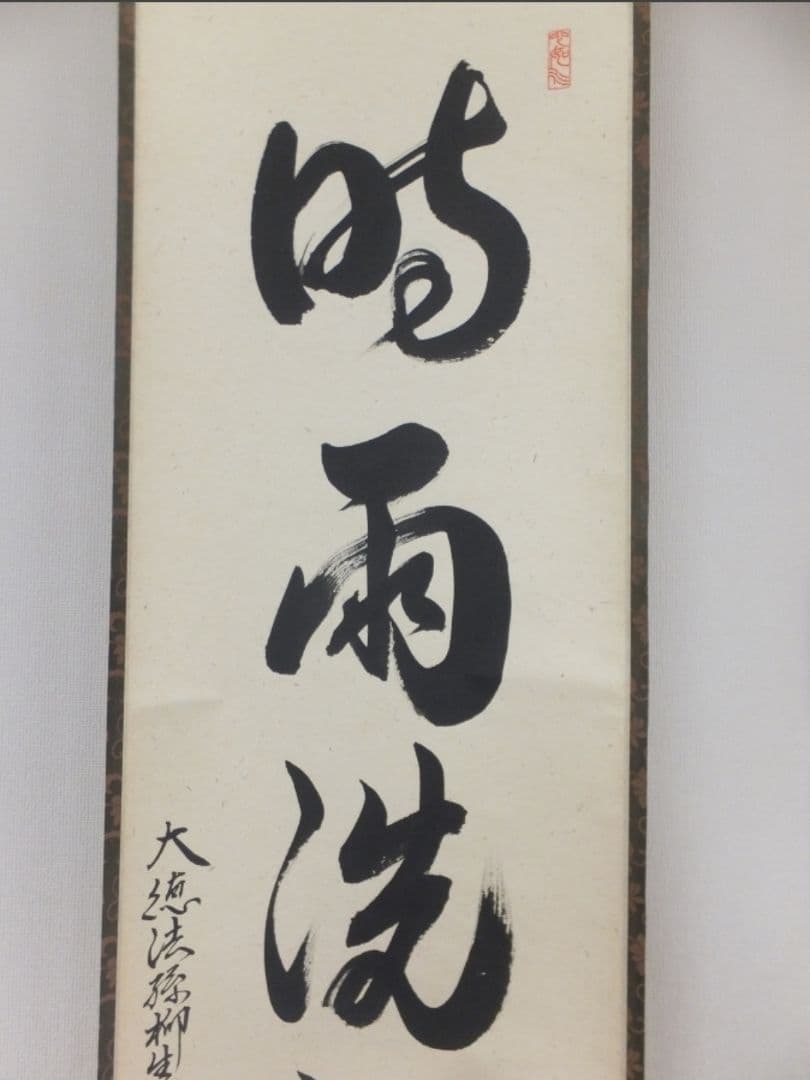 時雨洗
大徳法孫柳生